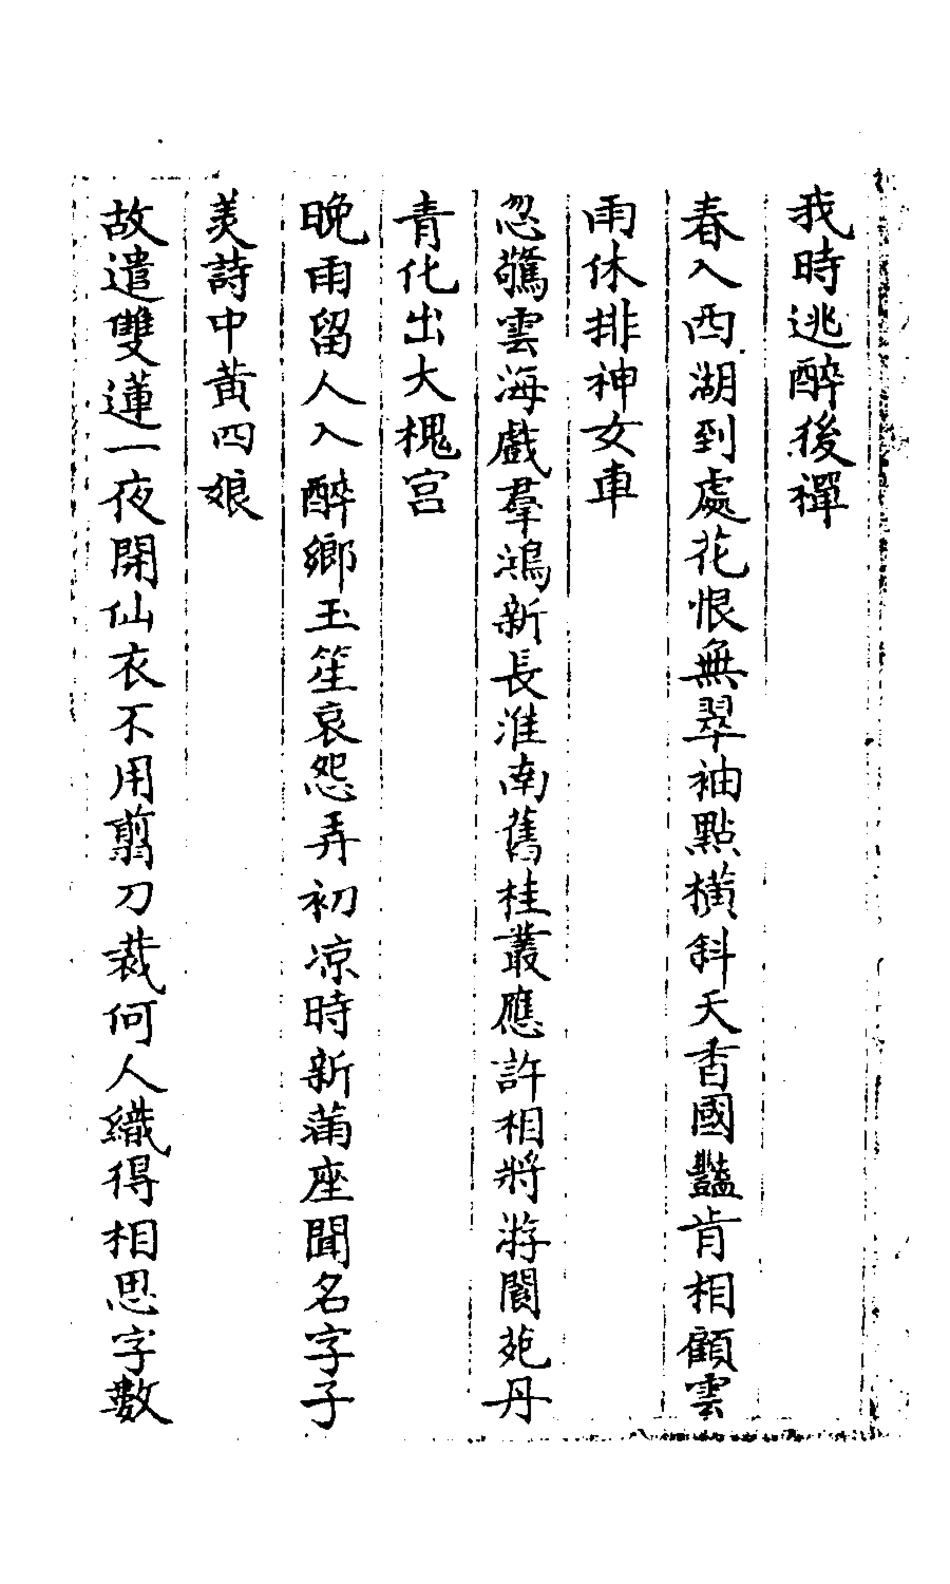 我時逃醉後禪
春入西湖到處花恨無翠袖點橫斜天香國豔肯相顧雲
雨休排神女車
忽驚雲海戲羣鴻新長淮南舊桂叢應許相將游閬苑丹
青化出大槐宮
晚雨留人入醉鄉玉笙哀怨弄初凉時新蒲座聞名字子
美詩中黃四娘
故遣雙蓮一夜開仙衣不用翦刀裁何人織得相思字數